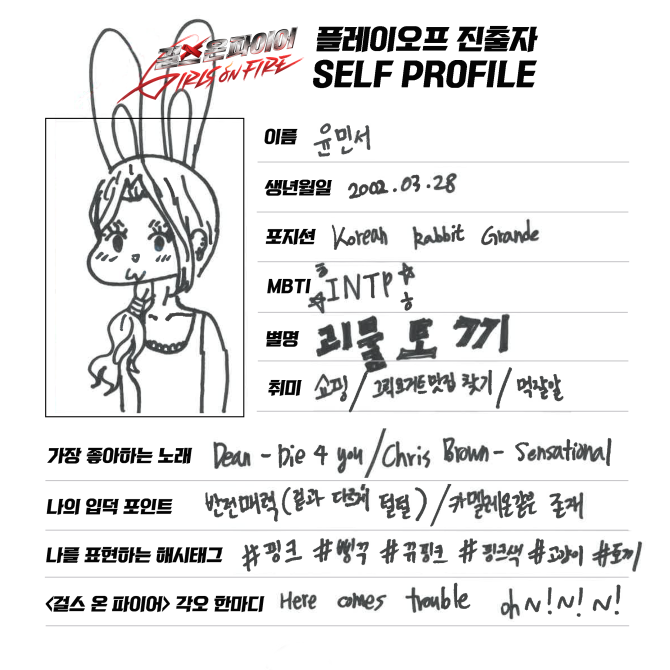 걸스온파이어 플레이오프 진출자
GIRLS ON FIRE SELF PROFILE
이름 윤민서
생년월일 2002.03.28
포지션 Korean Rabbit Grande
MBTI INTP
별명 괴물토끼
취미 쇼핑/그릭요거트맛집 찾기/먹잘알
가장 좋아하는 노래 Dean - Die 4 you/Chris Brown - Sensational
나의 입덕 포인트 반전매력(겉과 다르게 털털)/카멜레온같은 존재
나를 표현하는 해시태그 #핑크 #삥꾸 #뀨핑크 #핑크색 #고양이 #토끼
<걸스 온 파이어> 각오 한마디 Here comes trouble oh~!~!~!